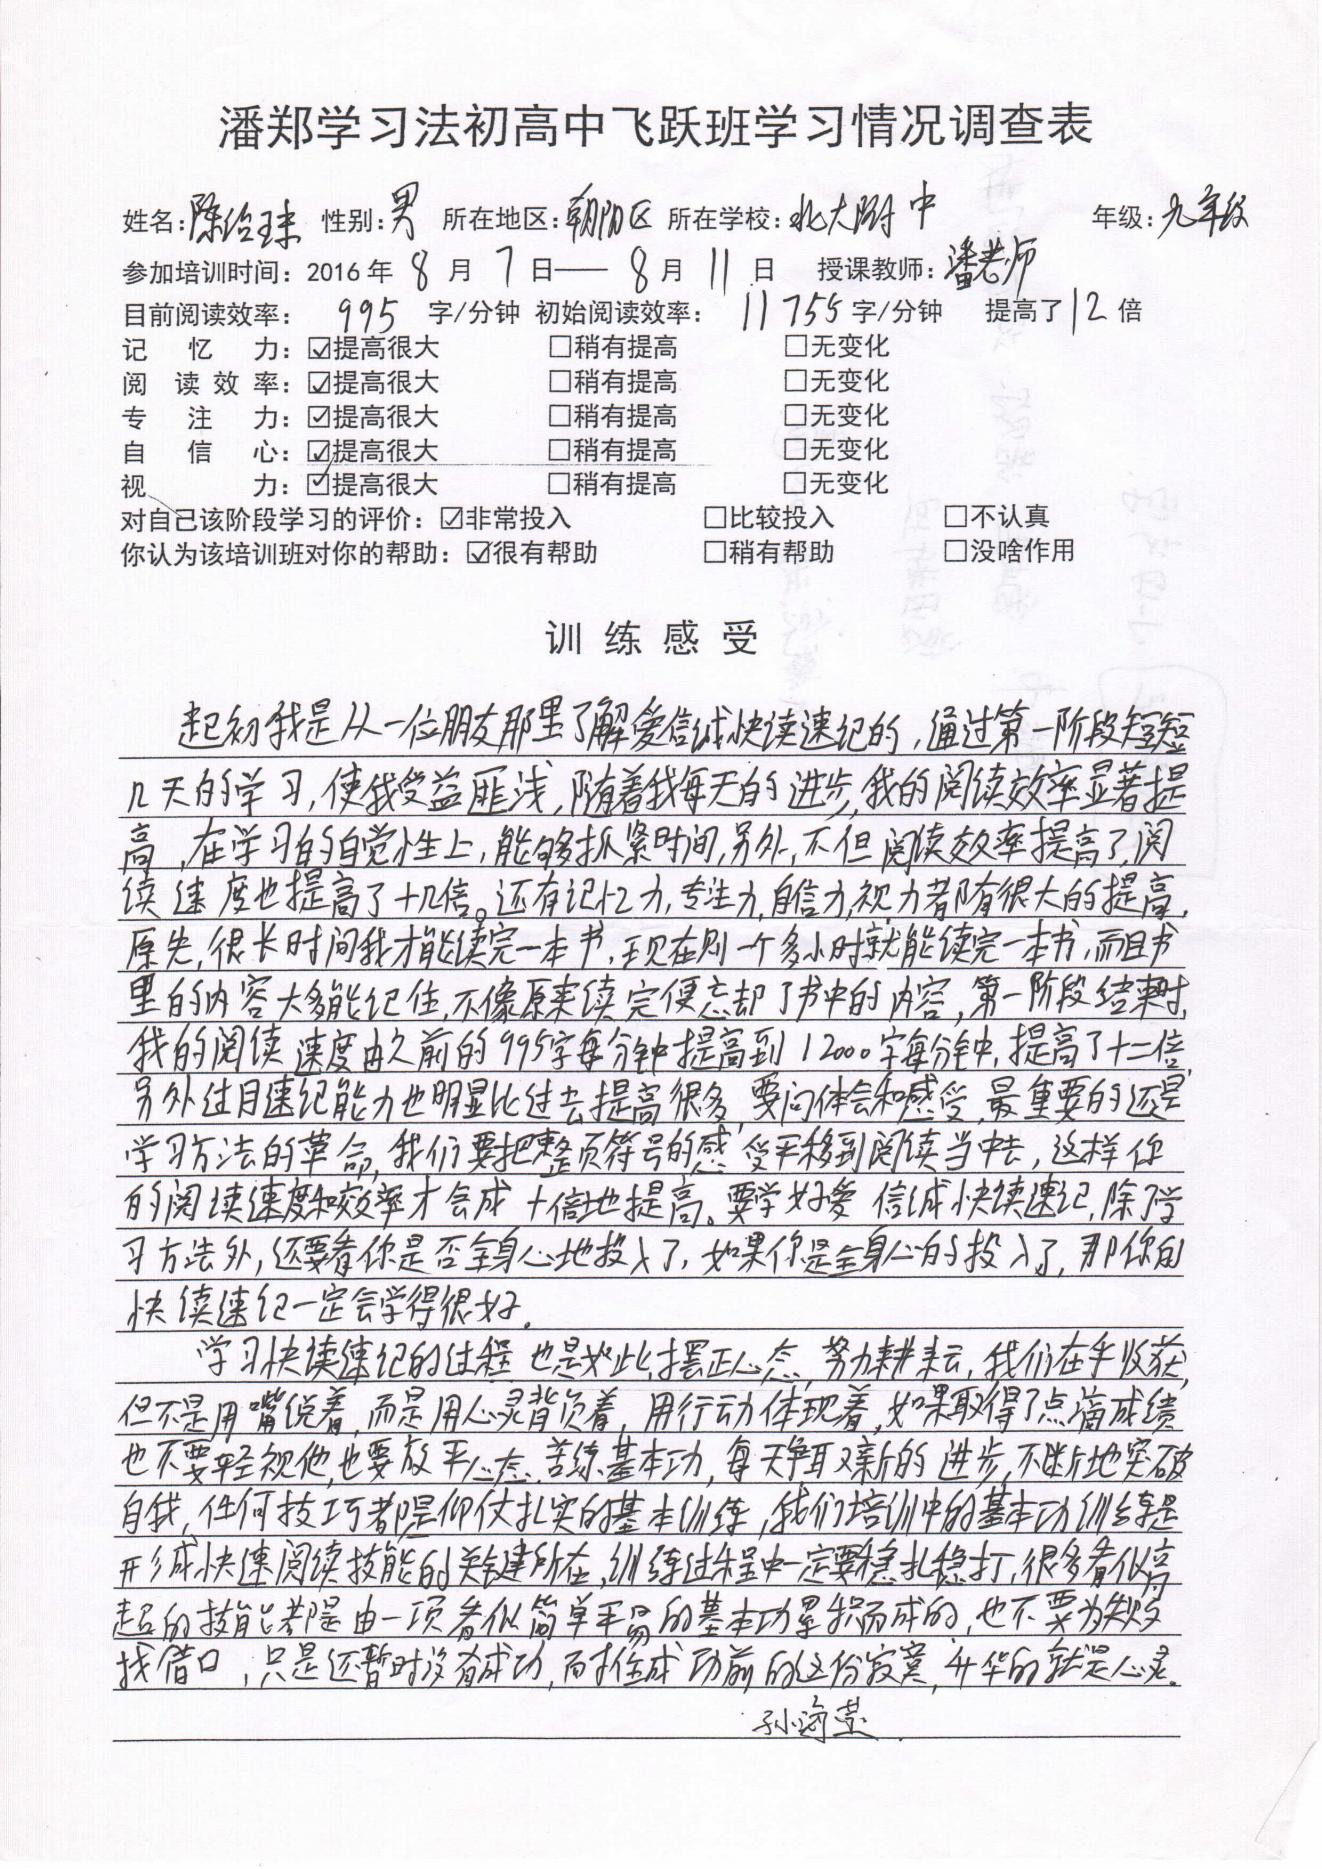 潘郑学习法初高中飞跃班学习情况调查表
姓名:陈绍球 性别:男 所在地区:朝阳区 所在学校:北大附中 年级:九年级
参加培训时间:2016年 8 月 7 日—— 8 月 11 日 授课教师:潘老师
目前阅读效率: 995 字/分钟 初始阅读效率: 11755 字/分钟 提高了12倍
记忆力:☑提高很大 □稍有提高 □无变化
阅读效率:☑提高很大 □稍有提高 □无变化
专注力:☑提高很大 □稍有提高 □无变化
自信心:☑提高很大 □稍有提高 □无变化
视力:☑提高很大 □稍有提高 □无变化
对自己该阶段学习的评价:☑非常投入 □比较投入 □不认真
你认为该培训班对你的帮助:☑很有帮助 □稍有帮助 □没啥作用
训练感受
起初我是从一位朋友那里了解爱信诚快读速记的,通过第一阶段短短
几天的学习,使我受益匪浅,随着我每天的进步,我的阅读效率显著提
高,在学习的自觉性上,能够抓紧时间,另外,不但阅读效率提高了,阅
读速度也提高了十几倍。还有记忆力,专注力,自信力,视力都有很大的提高,
原先,很长时间我才能读完一本书,现在则一个多小时就能读完一本书,而且书
里的内容大多能记住,不像原来读完便忘却了书中的内容,第一阶段结束时,
我的阅读速度由久前的995字每分钟提高到12000字每分钟,提高了十二倍,
另外过目速记能力也明显比过去提高很多,要问体会和感受,最重要的还是
学习方法的革命,我们要把整页符号的感受平移到阅读当中去,这样你
的阅读速度和效率才会成十倍地提高。要学好爱信诚快读速记,除了学
习方法外,还要看你是否全身心地投入了,如果你是全身心的投入了,那你的
快读速记一定会学得很好.
学习快读速记的过程也是如此,摆正心态,努力耕耘,我们在乎收获,
但不是用嘴说着,而是用心灵背负着,用行动体现着,如果取得了点滴成绩
也不要轻视他,也要放平心态,苦练基本功,每天争取新的进步,不断地突破
自我,任何技巧都是仰仗扎实的基本训练,我们培训中的基本功训练是
形成快速阅读技能的关键所在,训练过程中一定要稳扎稳打,很多看似高
超的技能都是由一项看似简单平易的基本功累积而成的,也不要为失败
找借口,只是还暂时没有成功,而才住成功前的这份寂寞,升华的就是心灵.